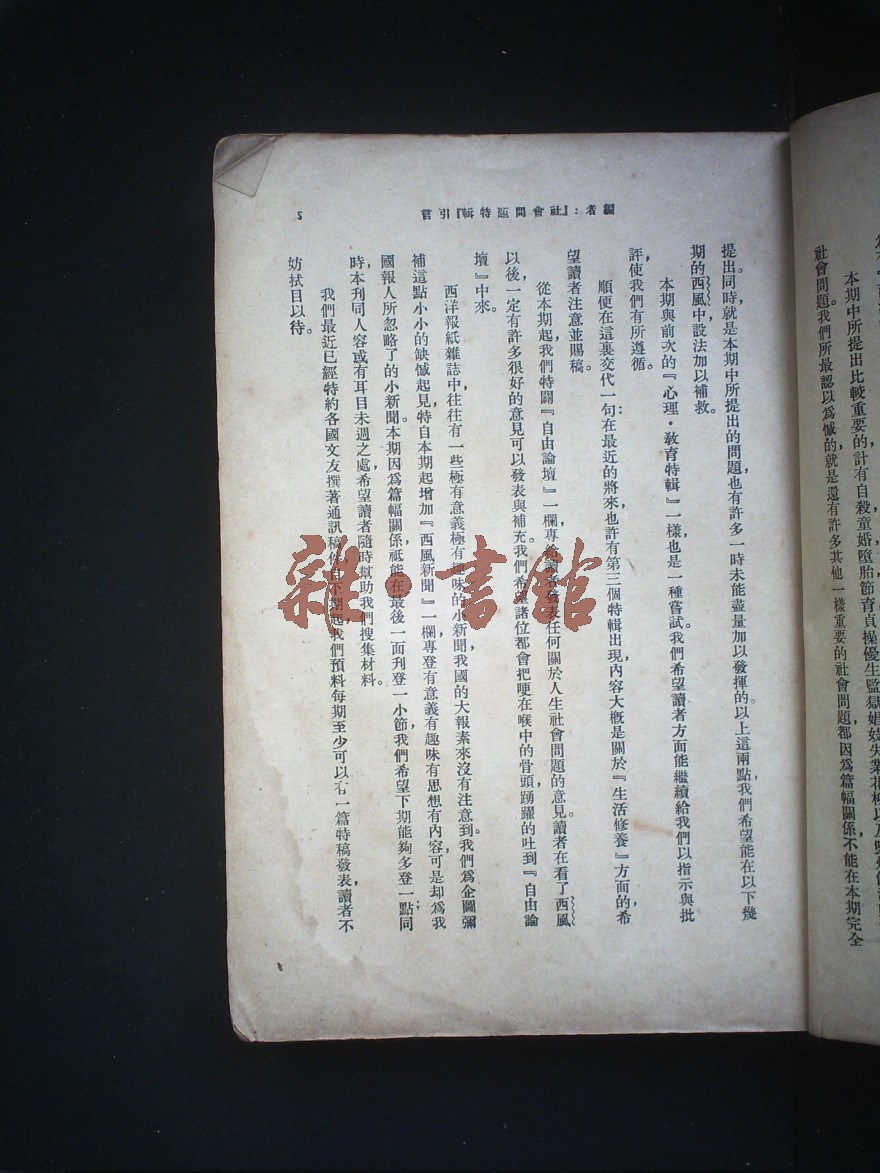 社會問題我們所最認以爲憾的就是還有許多其他一樣重要的社會問題都因爲篇幅關係不能在本期完全
本期中所提出比較重要的計有自殺童婚墮胎節育貞操優生監獄娼妓失業
編者：『社會問題特輯』引言
5
提出。同時就是本期中所提出的問題，也有許多一時未能盡量加以發揮的。以上這兩點，我們希望能在以下幾
期的西風中設法加以補救。
本期與前次的『心理·敎育特輯』一樣，也是一種嘗試。我們希望讀者方面能繼續給我們以指示與批
評，使我們有所遵循。
順便在這裏交代一句：在最近的將來也許有第三個特輯出現，內容大槪是關於『生活修養』方面的，希
望讀者注意並賜稿。
從本期起，我們特闢『自由論壇』一欄，專給讀者發表任何關於人生社會問題的意見。讀者在看了西風
以後，一定有許多很好的意見可以發表與補充。我們希望諸位都會把哽在喉中的骨頭，踴躍的吐到『自由論
壇』中來。
西洋報紙雜誌中，往往有一些極有意義極有趣味的小新聞，我國的大報素來沒有注意到。我們爲企圖彌
補這點小小的缺憾起見，特自本期起增加『西風新聞』一欄，專登有意義有趣味有思想有內容，可是却爲我
國報人所忽略了的小新聞。本期因爲篇幅關係，祗能在最後一面刋登一小節，我們希望下期能夠多登一點；同
時本刋同人容或有耳目未週之處，希望讀者隨時幫助我們搜集材料。
我們最近已經特約各國文友撰著通訊稿件，自下期起，我們預料每期至少可以有一篇特稿發表，讀者不
妨拭目以待。
雜·書館